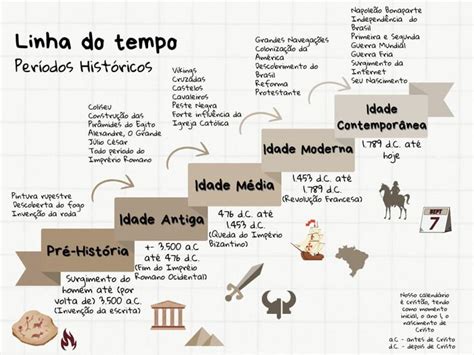 Linha do tempo
Períodos Históricos
Pintura rupestre
Descoberta do fogo
Invenção da roda
Pré-História
Surgimento do
homem até (por
volta de) 3.500 a.C.
(Invenção da escrita)
Coliseu
Construção das
Pirâmides do Egito
Alexandre, O Grande
Júlio César
Todo período do
Imprério Romano
Idade Antiga
+- 3.500 a.C
até 476 d.C.
(Fim do Impréio
Romano Ocidental)
Vikings
Cruzadas
Castelos
Cavaleiros
Peste Negra
Forte influência da
Igreja Católica
Idade Média
476 d.C. até
1.453 d.C.
(Queda do Império
Bizantino)
Grandes Navegações
Colonização da
América
Descobrimento do
Brasil
Reforma
Protestante
Idade Moderna
1.453 d.C. até
1.789 d.C.
(Revolução Francesa)
Napoleão Bonaparte
Independência do
Brasil
Primeira e Segunda
Guerra Mundial
Guerra Fria
Surgimento da
Internet
Seu Nascimento
Idade
Contemporânea
1.789 d.C. até
hoje
SEPT
7
Nosso calendário
é cristão, tendo
como momento
inicial, o ano 1, o
nascimento de
Cristo
a.C - antes de Cristo
d.C. - depois de Cristo